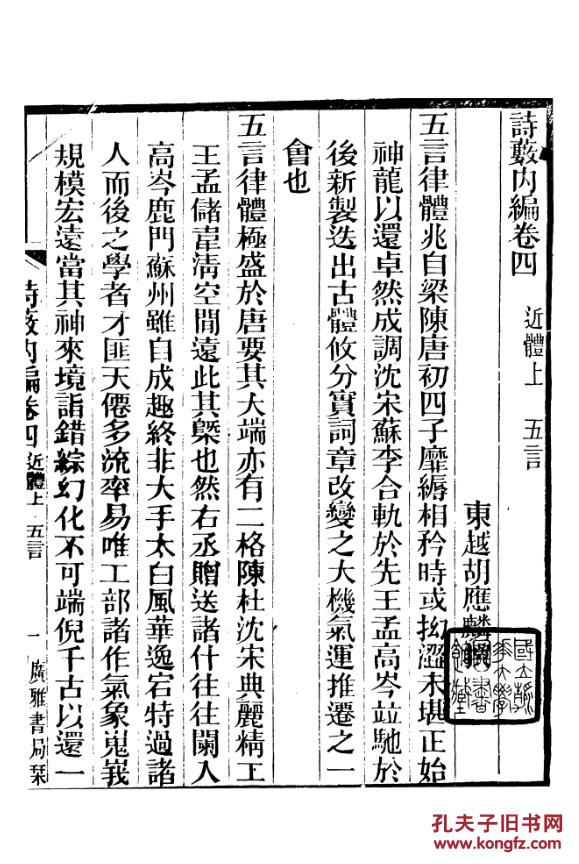 詩藪內編卷四　近體上　五言
東越胡應麟
五言律體兆自梁陳唐初四子靡縟相矜時或拗澀未堪正始
神龍以還卓然成調沈宋蘇李合軌於先王孟高岑竝馳於
後新製迭出古體攸分實詞章改變之大機氣運推遷之一
會也
五言律體極盛於唐要其大端亦有二格陳杜沈宋典麗精工
王孟儲韋清空閒遠此其槩也然右丞贈送諸什往往闌入
高岑鹿門蘇州雖自成趣終非大手太白風華逸宕特過諸
人而後之學者才匪天僊多流率易唯工部諸作氣象嵬峩
規模宏遠當其神來境詣錯綜幻化不可端倪千古以還一
詩藪內編卷四　近體上　五言　一　廣雅書局栞
孔夫子旧书网
www.kongfz.com